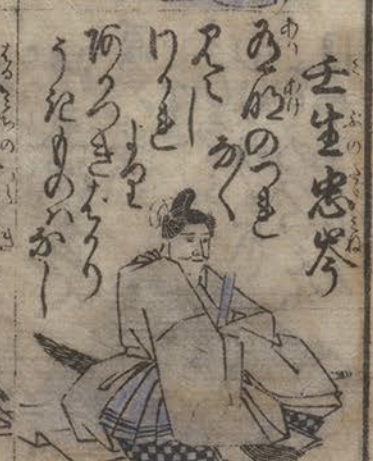 壬生忠岑
有明のつれ
なく
見えし
わかれ
より
あかつきばかり
うきものハなし